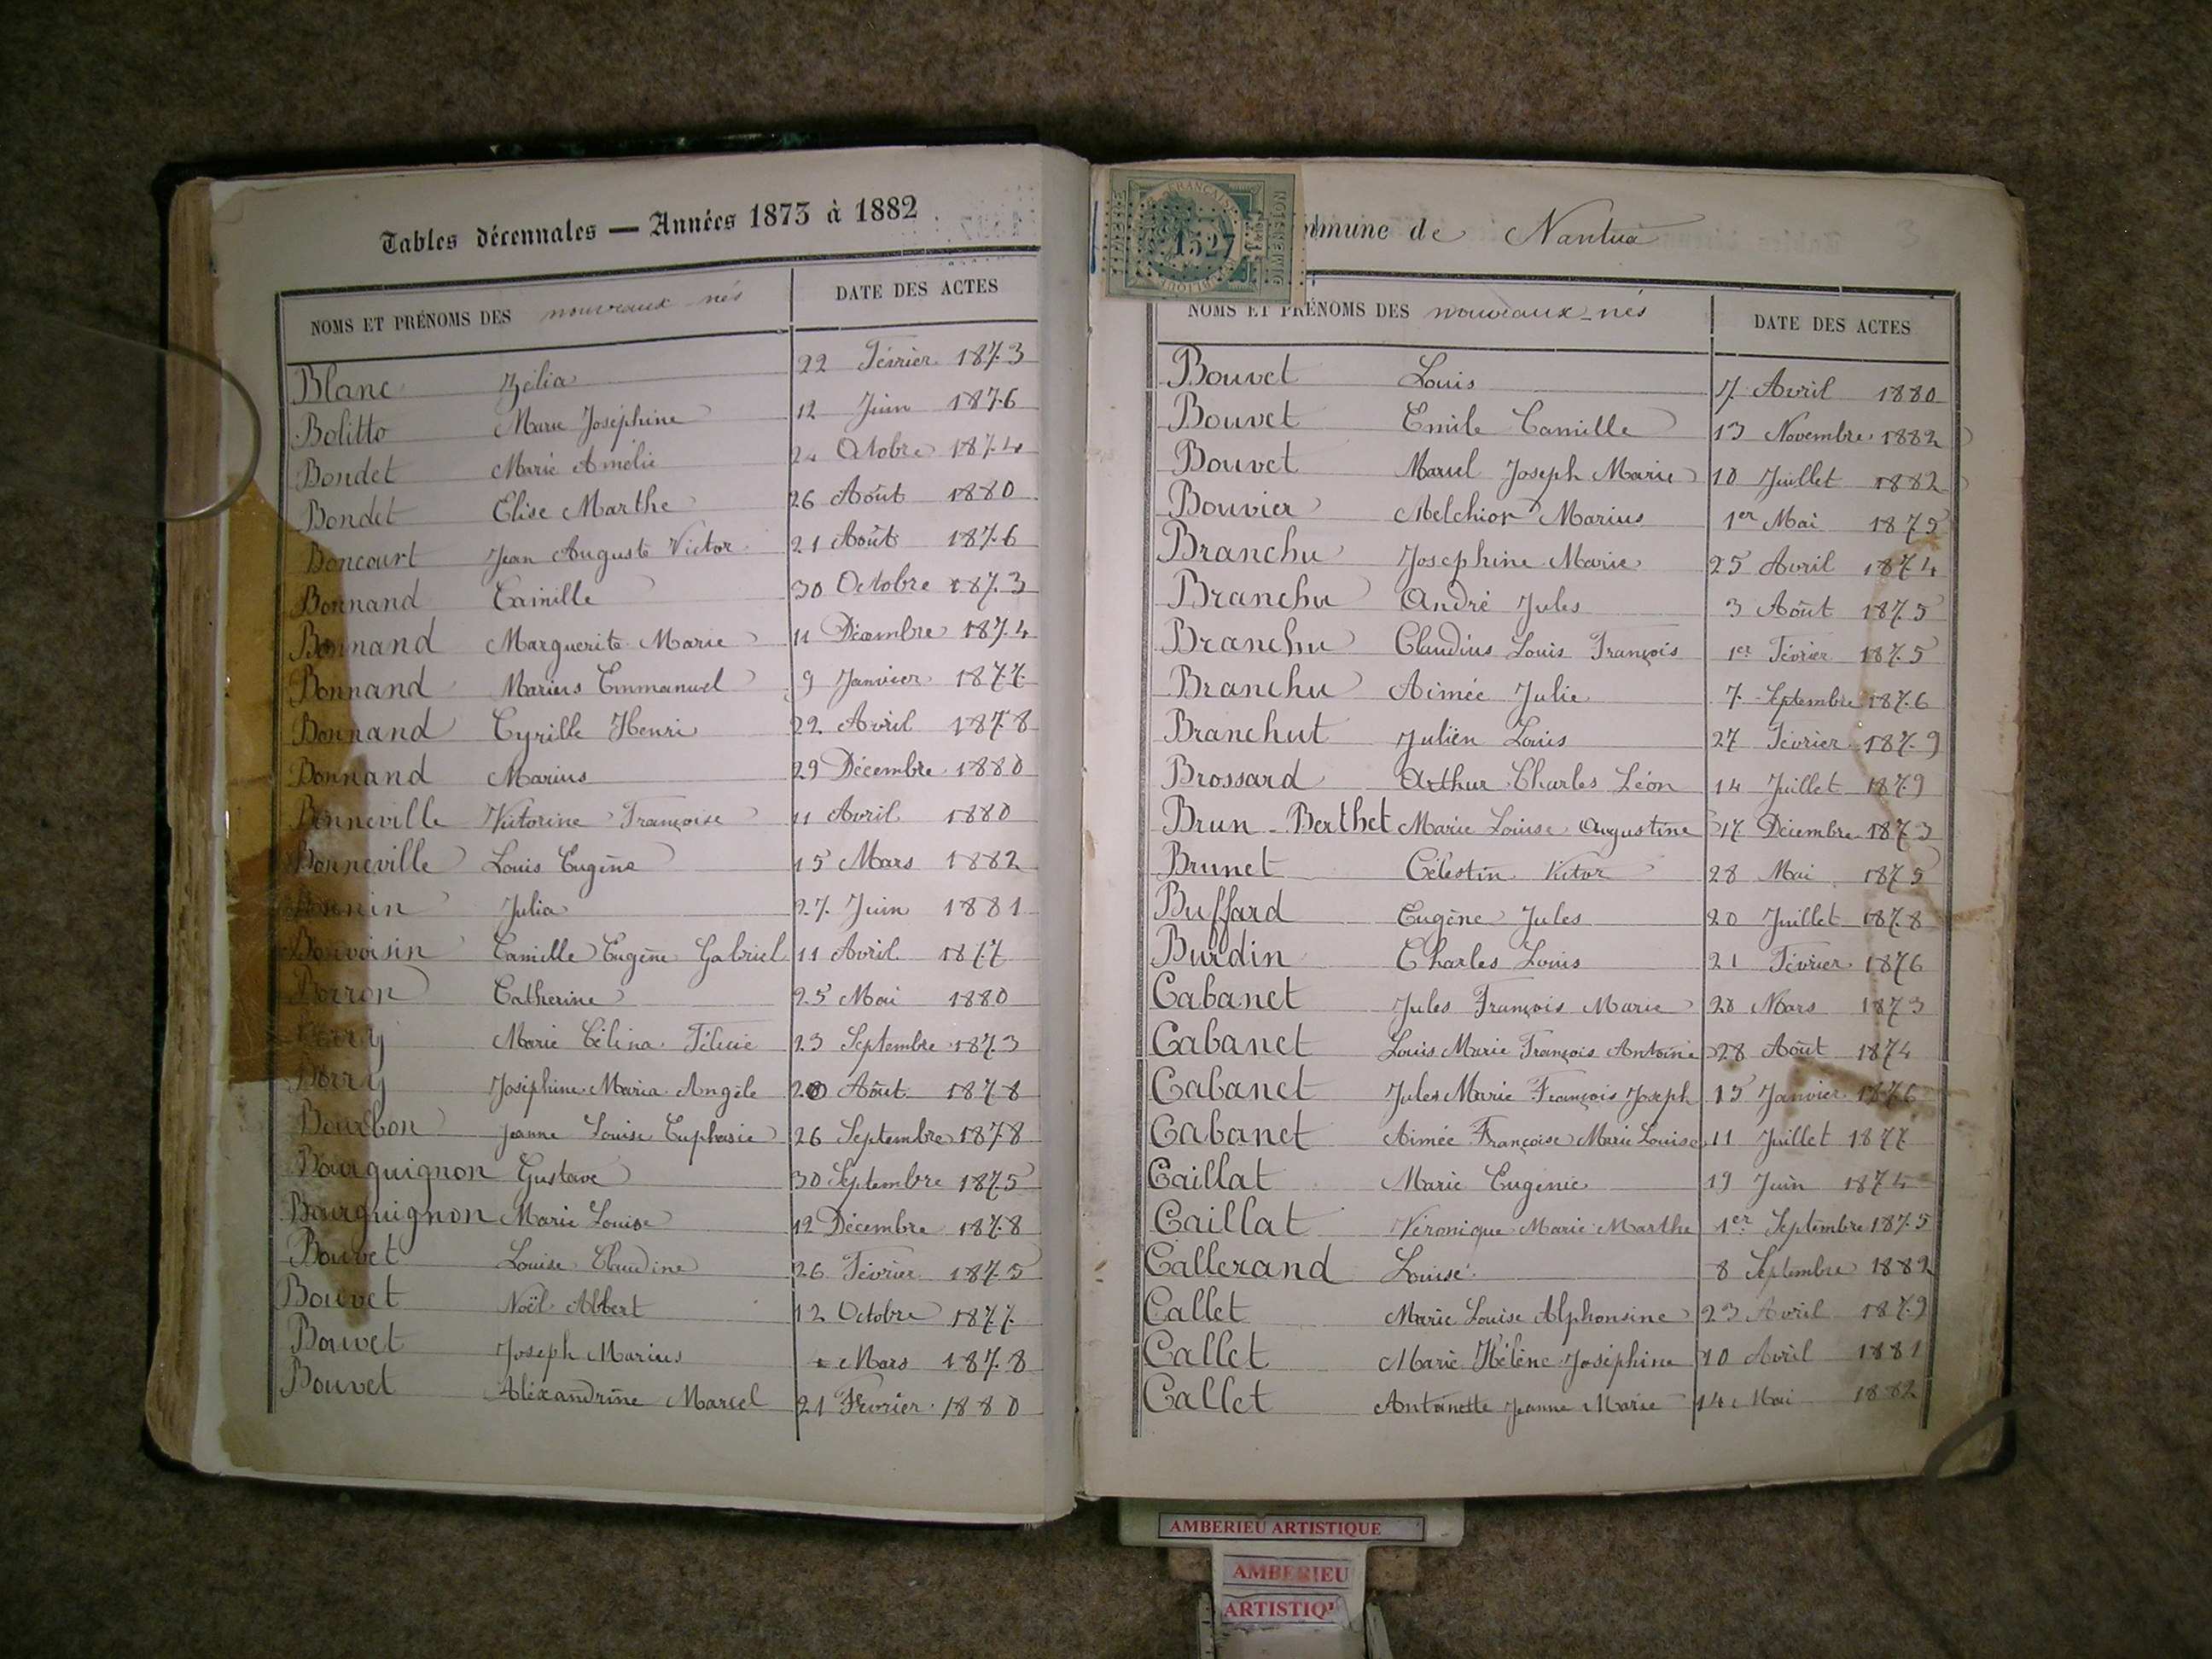 Tables décennales — Années 1873 à 1882
NOMS ET PRÉNOMS DES nouveaux-nés DATE DES ACTES
Blanc Zélia 22 Février 1873
Bolitto Marie Joséphine 12 Juin 1876
Bondet Marie Amélie 24 Octobre 1874
Bondet Elise Marthe 26 Août 1880
Boncourt Jean Auguste Victor 21 Août 1876
Bonnand Camille 30 Octobre 1873
Bonnand Marguerite Marie 11 Décembre 1874
Bonnand Marius Emmanuel 9 Janvier 1877
Bonnand Cyrille Henri 22 Avril 1878
Bonnand Marius 29 Décembre 1880
Bonneville Victorine Françoise 11 Avril 1880
Bonneville Louis Eugène 15 Mars 1882
Bonnin Julia 27 Juin 1881
Bonvoisin Camille Eugène Gabriel 11 Avril 1877
Borron Catherine 25 Mai 1880
Marie Célina Félicie 23 Septembre 1873
Borry Joséphine Maria Angèle 20 Août 1878
Bourbon Jeanne Louise Euphasie 26 Septembre 1878
Bourguignon Gustave 30 Septembre 1875
Bourguignon Marie Louise 12 Décembre 1878
Bouvet Louise Claudine 26 Février 1875
Bouvet Noël Albert 12 Octobre 1877
Bouvet Joseph Marius Mars 1878
Bouvet Aléxandrine Marcel 21 Février 1880
FRANÇAISE
1527
mmune de Nantua
NOMS ET PRÉNOMS DES nouveaux-nés DATE DES ACTES
Bouvet Louis 7 Avril 1880
Bouvet Emile Camille 13 Novembre 1882
Bouvet Marcel Joseph Marie 10 Juillet 1882
Bouvier Melchior Marius 1er Mai 1875
Branchu Josephine Marie 25 Avril 1874
Branchu André Jules 3 Août 1875
Branchu Claudius Louis François 1er Février 1875
Branchu Aimée Julie 7 Septembre 1876
Branchut Julien Louis 27 Février 1879
Brossard Arthur Charles Léon 14 Juillet 1879
Brun-Berthet Marie Louise Augustine 17 Décembre 1873
Brunet Célestin Victor 28 Mai 1875
Buffard Eugène Jules 20 Juillet 1878
Burdin Charles Louis 21 Février 1876
Cabanet Jules François Marie 20 Mars 1873
Cabanet Louis Marie François Antoine 28 Août 1874
Cabanet Jules Marie François Joseph 15 Janvier 1876
Cabanet Aimée Françoise Marie Louise 11 Juillet 1877
Caillat Marie Eugénie 19 Juin 1874
Caillat Véronique Marie Marthe 1er Septembre 1875
Callerand Louise 8 Septembre 1882
Callet Marie Louise Alphonsine 23 Avril 1879
Callet Marie Hélène Joséphine 10 Avril 1881
Callet Antoinette Jeanne Marie 14 Mai 1882
AMBERIEU ARTISTIQUE
AMBERIEU
ARTISTIQU